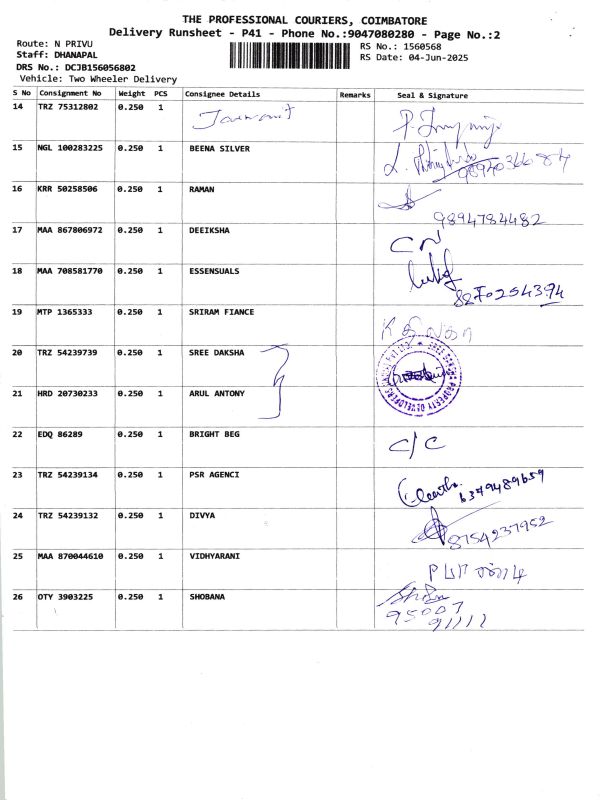 THE PROFESSIONAL COURIERS, COIMBATORE
Delivery Runsheet - P41 - Phone No.:9047080280 - Page No.:2
Route: N PRIVU
Staff: DHANAPAL
DRS No.: DCJB156056802
Vehicle: Two Wheeler Delivery
RS No.: 1560568
RS Date: 04-Jun-2025
S No Consignment No Weight PCS Consignee Details Remarks Seal & Signature
14 TRZ 75312802 0.250 1
15 NGL 100283225 0.250 1 BEENA SILVER
16 KRR 50258506 0.250 1 RAMAN 9894784482
17 MAA 867806972 0.250 1 DEEIKSHA
18 MAA 708581770 0.250 1 ESSENSUALS 8270254394
19 MTP 1365333 0.250 1 SRIRAM FIANCE
20 TRZ 54239739 0.250 1 SREE DAKSHA
21 HRD 20730233 0.250 1 ARUL ANTONY
22 EDQ 86289 0.250 1 BRIGHT BEG C/C
23 TRZ 54239134 0.250 1 PSR AGENCI 6379489659
24 TRZ 54239132 0.250 1 DIVYA 8754237952
25 MAA 870044610 0.250 1 VIDHYARANI
26 OTY 3903225 0.250 1 SHOBANA
95007
91111